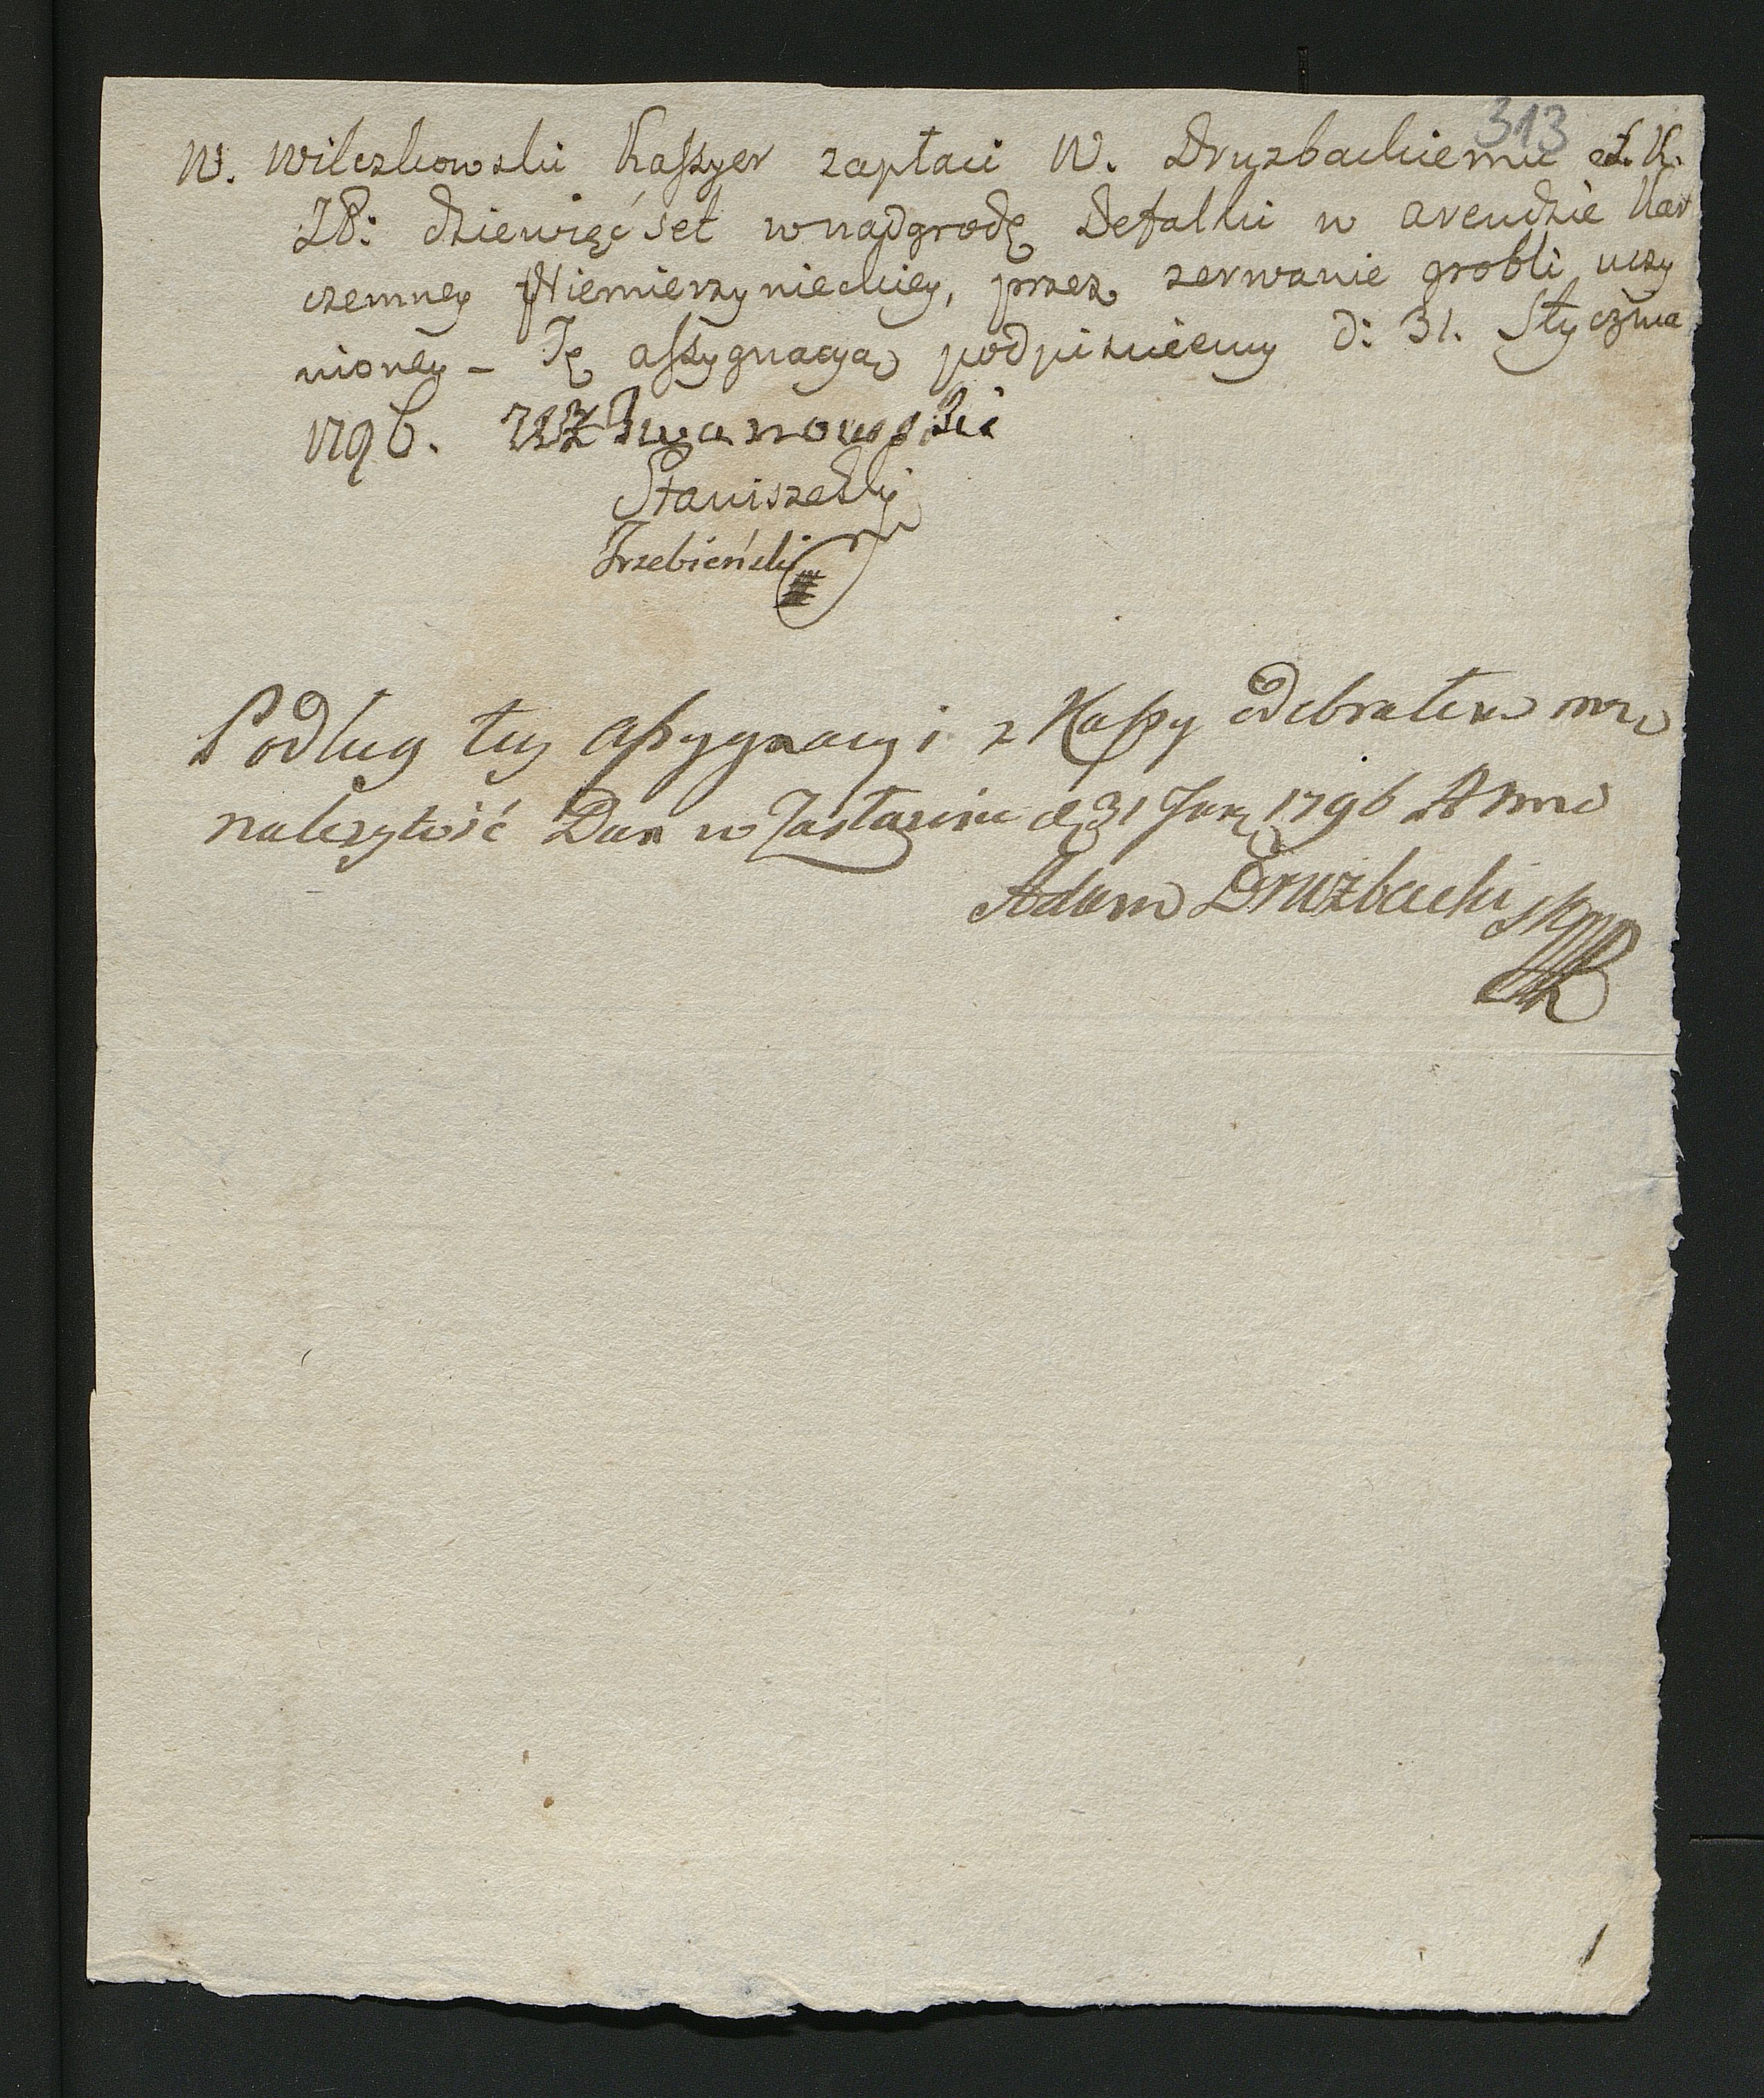 313
W. Wilczkowski Kaszyer zapłaci W. Druzbackiemu
ZP: dziewięćset w nadgrodę Defalki w arendzie Kar
czemney Niemierzynieckiey, przez zerwanie grobli uczy
nioney – Tę assygnacyą podpisuiemy d: 31. Stycznia
1796. Iwanowski
Staniszewski
Trzebiński
Podług tey assygnacyi z Kassy odebrałem mą
należytość Dan w Zasławiu d 31 Jan 1796 Anno
Adam Druzbacki